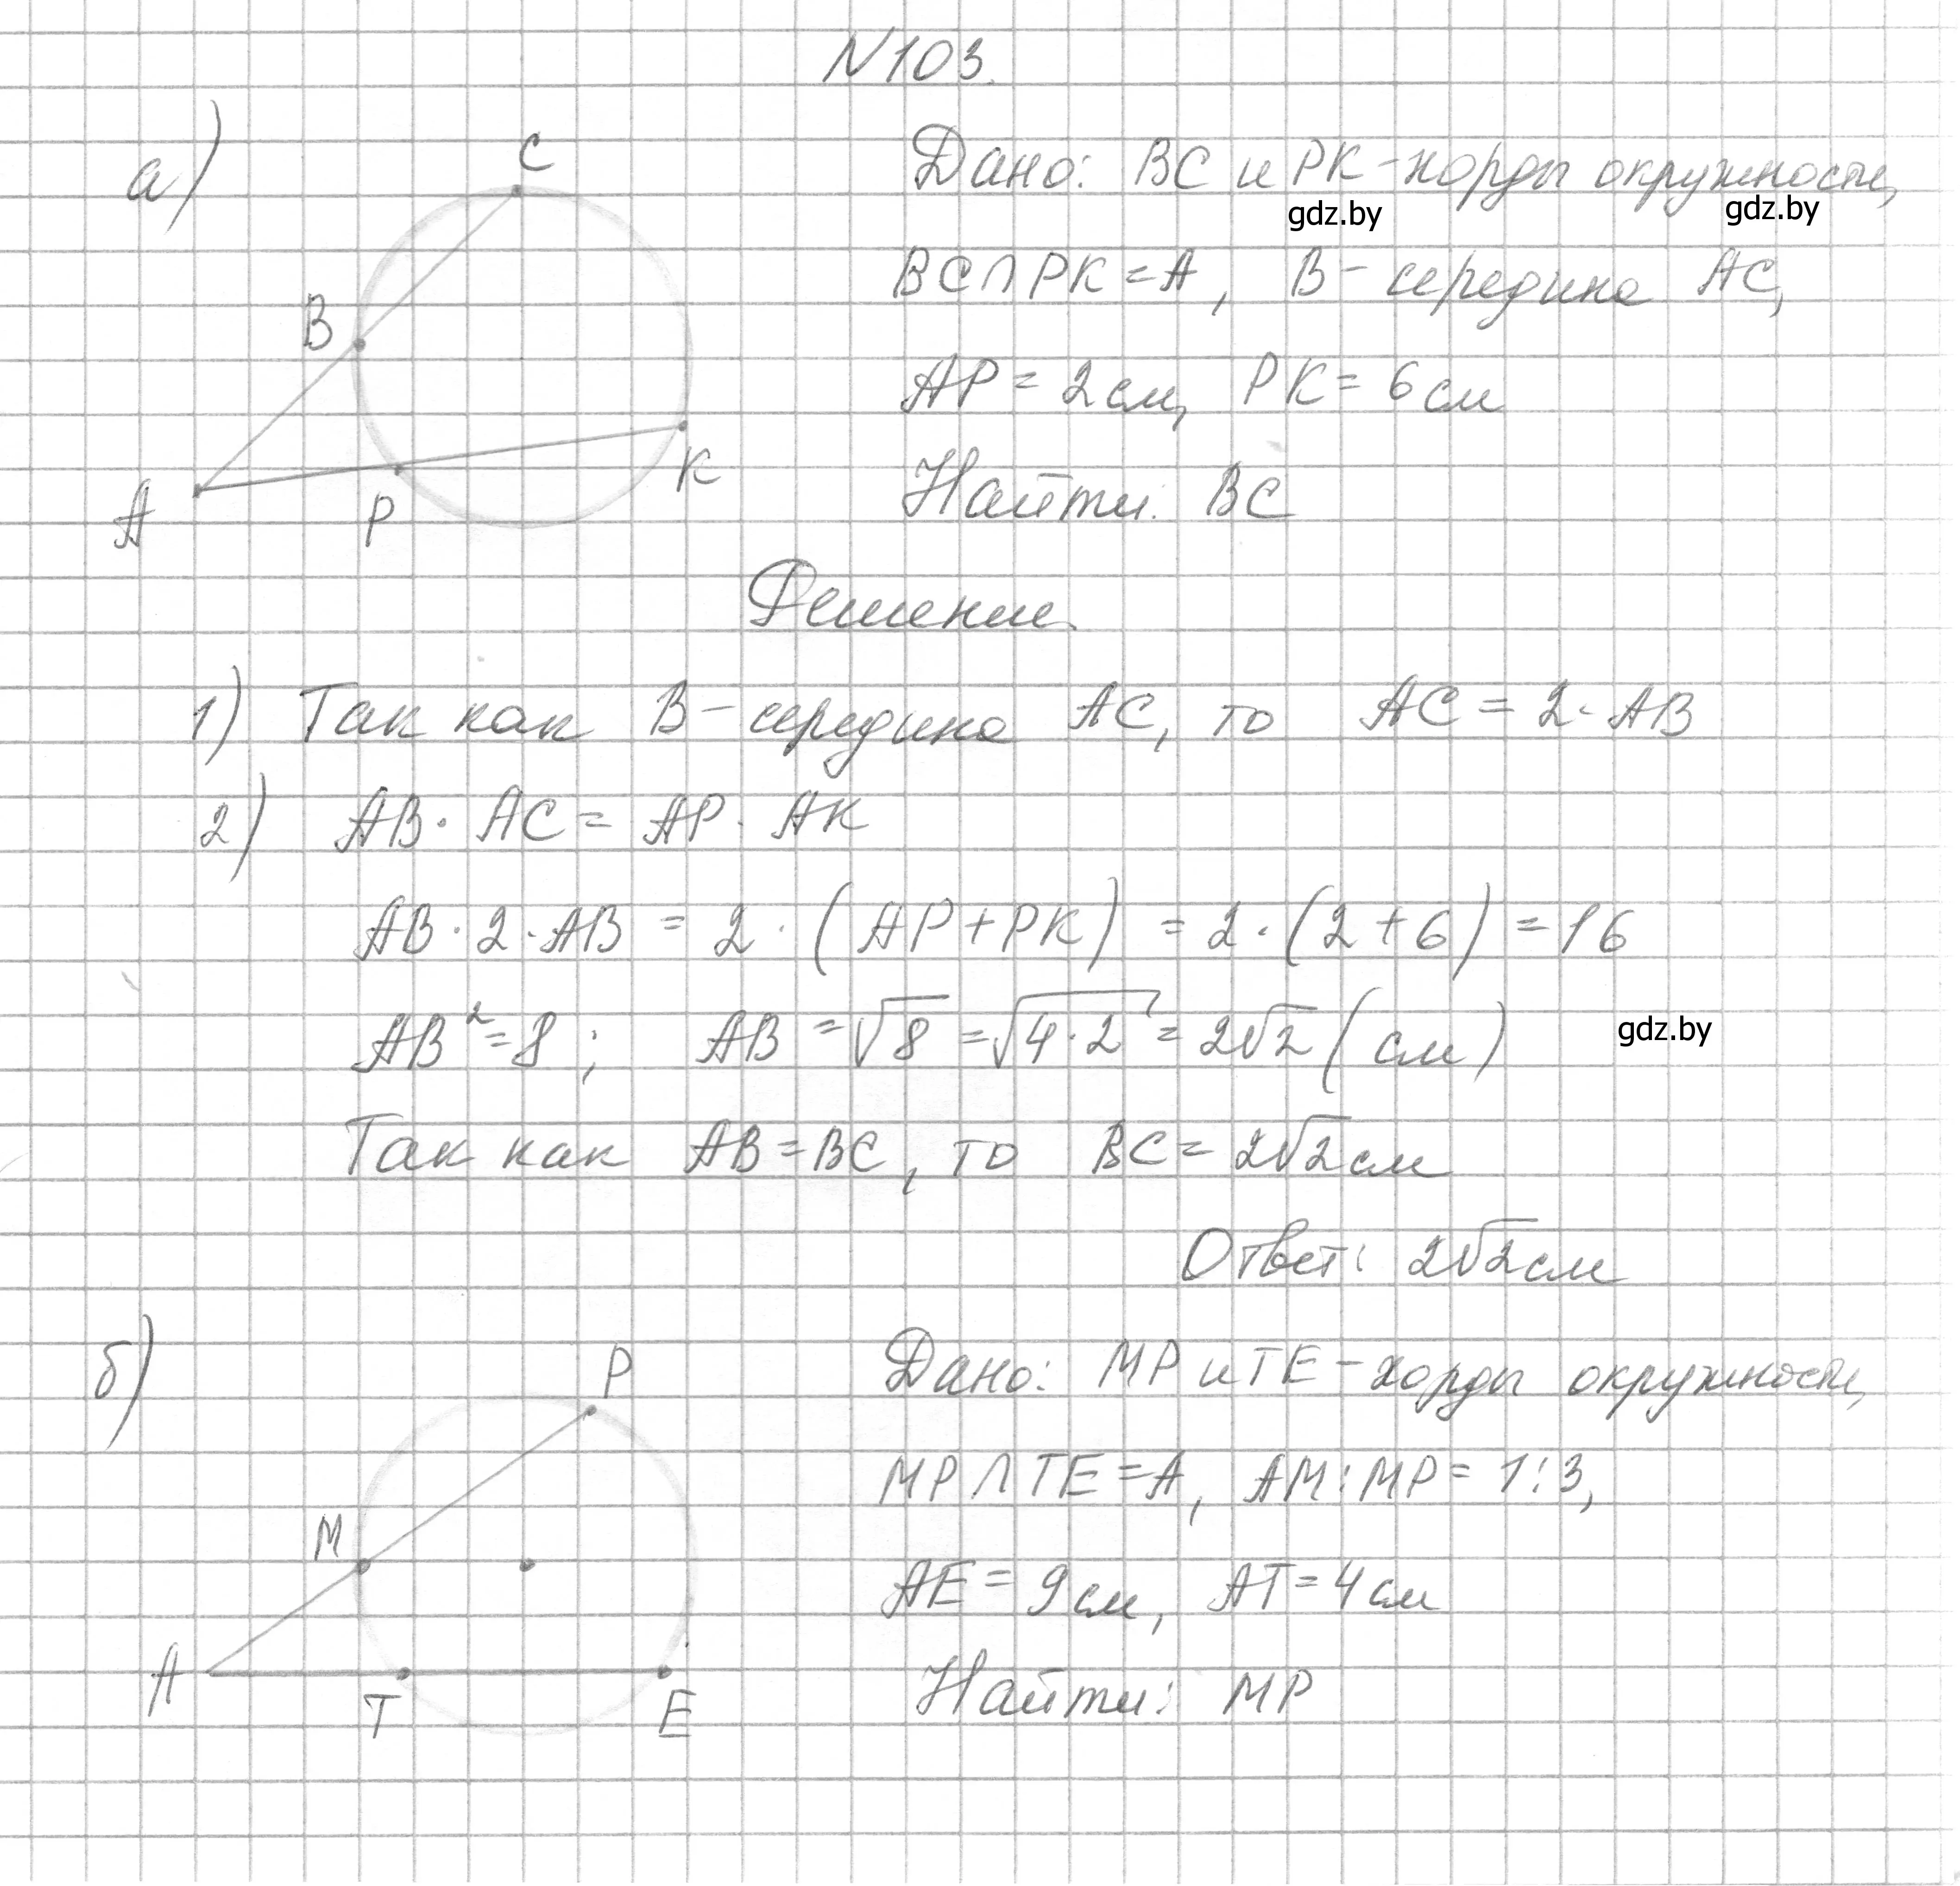 N103.
а)
C
B
A
P
K
Дано: BC и PK - хорды окружности,
gdz.by
gdz.by
BC∩PK = A, B - середина AC,
AP = 2 см, PK = 6 см
Найти: BC
Решение.
1) Так как B - середина AC, то AC = 2·AB
2) AB · AC = AP · AK
AB · 2 · AB = 2 · (AP + PK) = 2 · (2 + 6) = 16
AB² = 8; AB = √8 = √4·2 = 2√2 (см)
gdz.by
Так как AB = BC, то BC = 2√2 см
Ответ: 2√2 см
б)
P
M
A
T
E
Дано: MP и TE - хорды окружности,
MP∩TE = A, AM:MP = 1:3,
AE = 9 см, AT = 4 см
Найти: MP